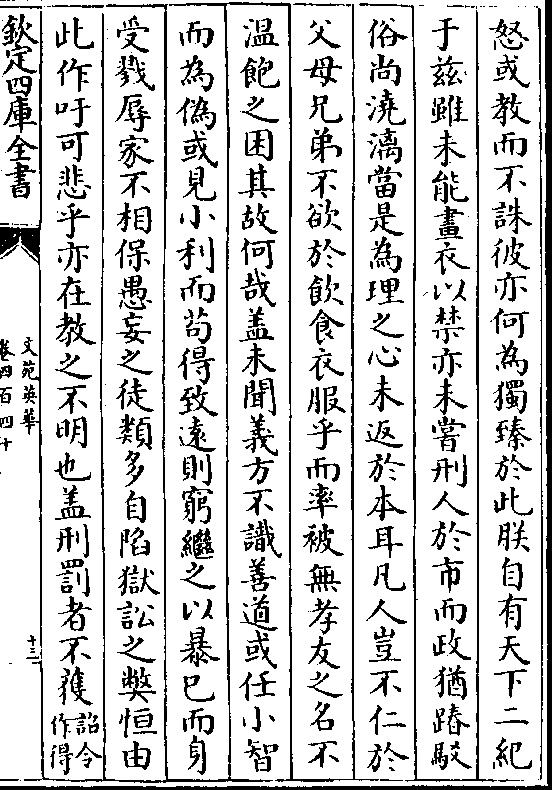 怒或教而不誅彼亦何為獨臻於此朕自有天下二紀
于兹雖未能畫衣以禁亦未嘗刑人於市而政猶踳駮
俗尚澆漓當是為理之心未返於本耳凡人豈不仁於
父母兄弟不欲於飲食衣服乎而率被無孝友之名不
温飽之困其故何哉盖未聞義方不識善道或任小智
而為偽或見小利而苟得致遠則窮繼之以暴已而身
受戮辱家不相保愚妄之徒類多自陷獄訟之弊恒由
此作吁可悲乎亦在教之不明也盖刑罰者不獲詔令作得
欽定四庫全書
文苑英華
卷四百四十
十三